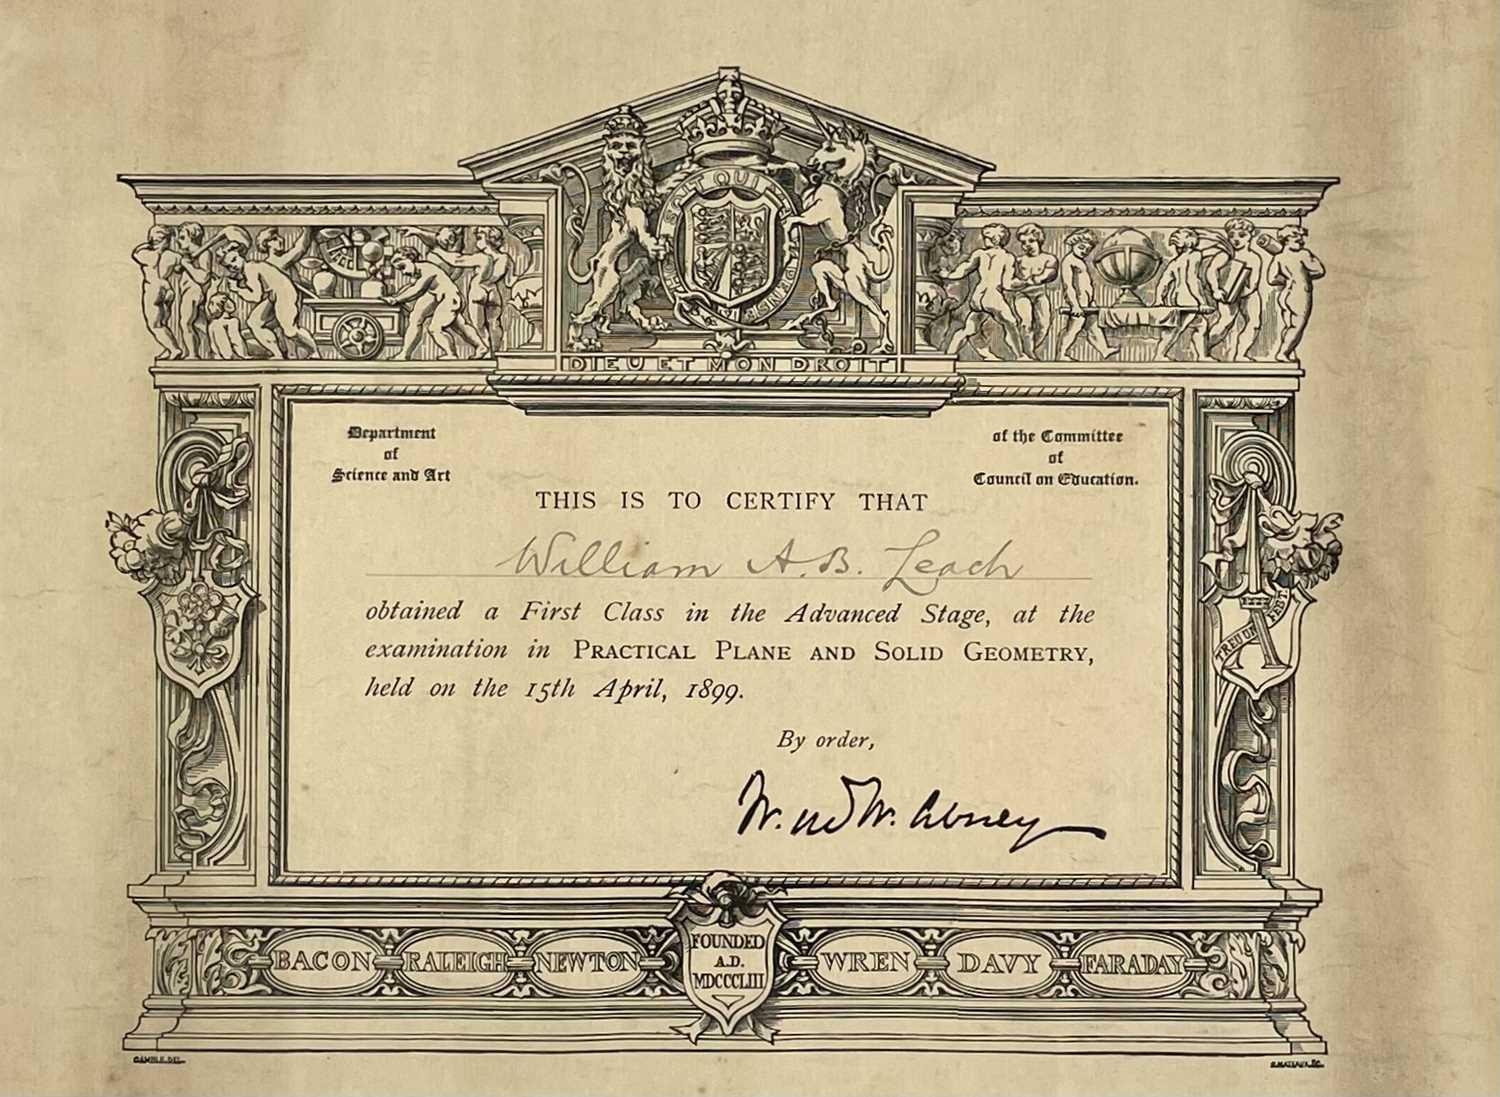 SOIT QUI MAL Y PENSE
DIEU ET MON DROIT
Department
of
Science and Art
of the Committee
of
Council on Education.
THIS IS TO CERTIFY THAT
William A. B. Leach
obtained a First Class in the Advanced Stage, at the
examination in PRACTICAL PLANE AND SOLID GEOMETRY,
held on the 15th April, 1899.
By order,
W. de W. Abney
BACON RALEIGH NEWTON
FOUNDED
A.D.
MDCCCLIII
WREN DAVY FARADAY
GAMBLE. DEL.